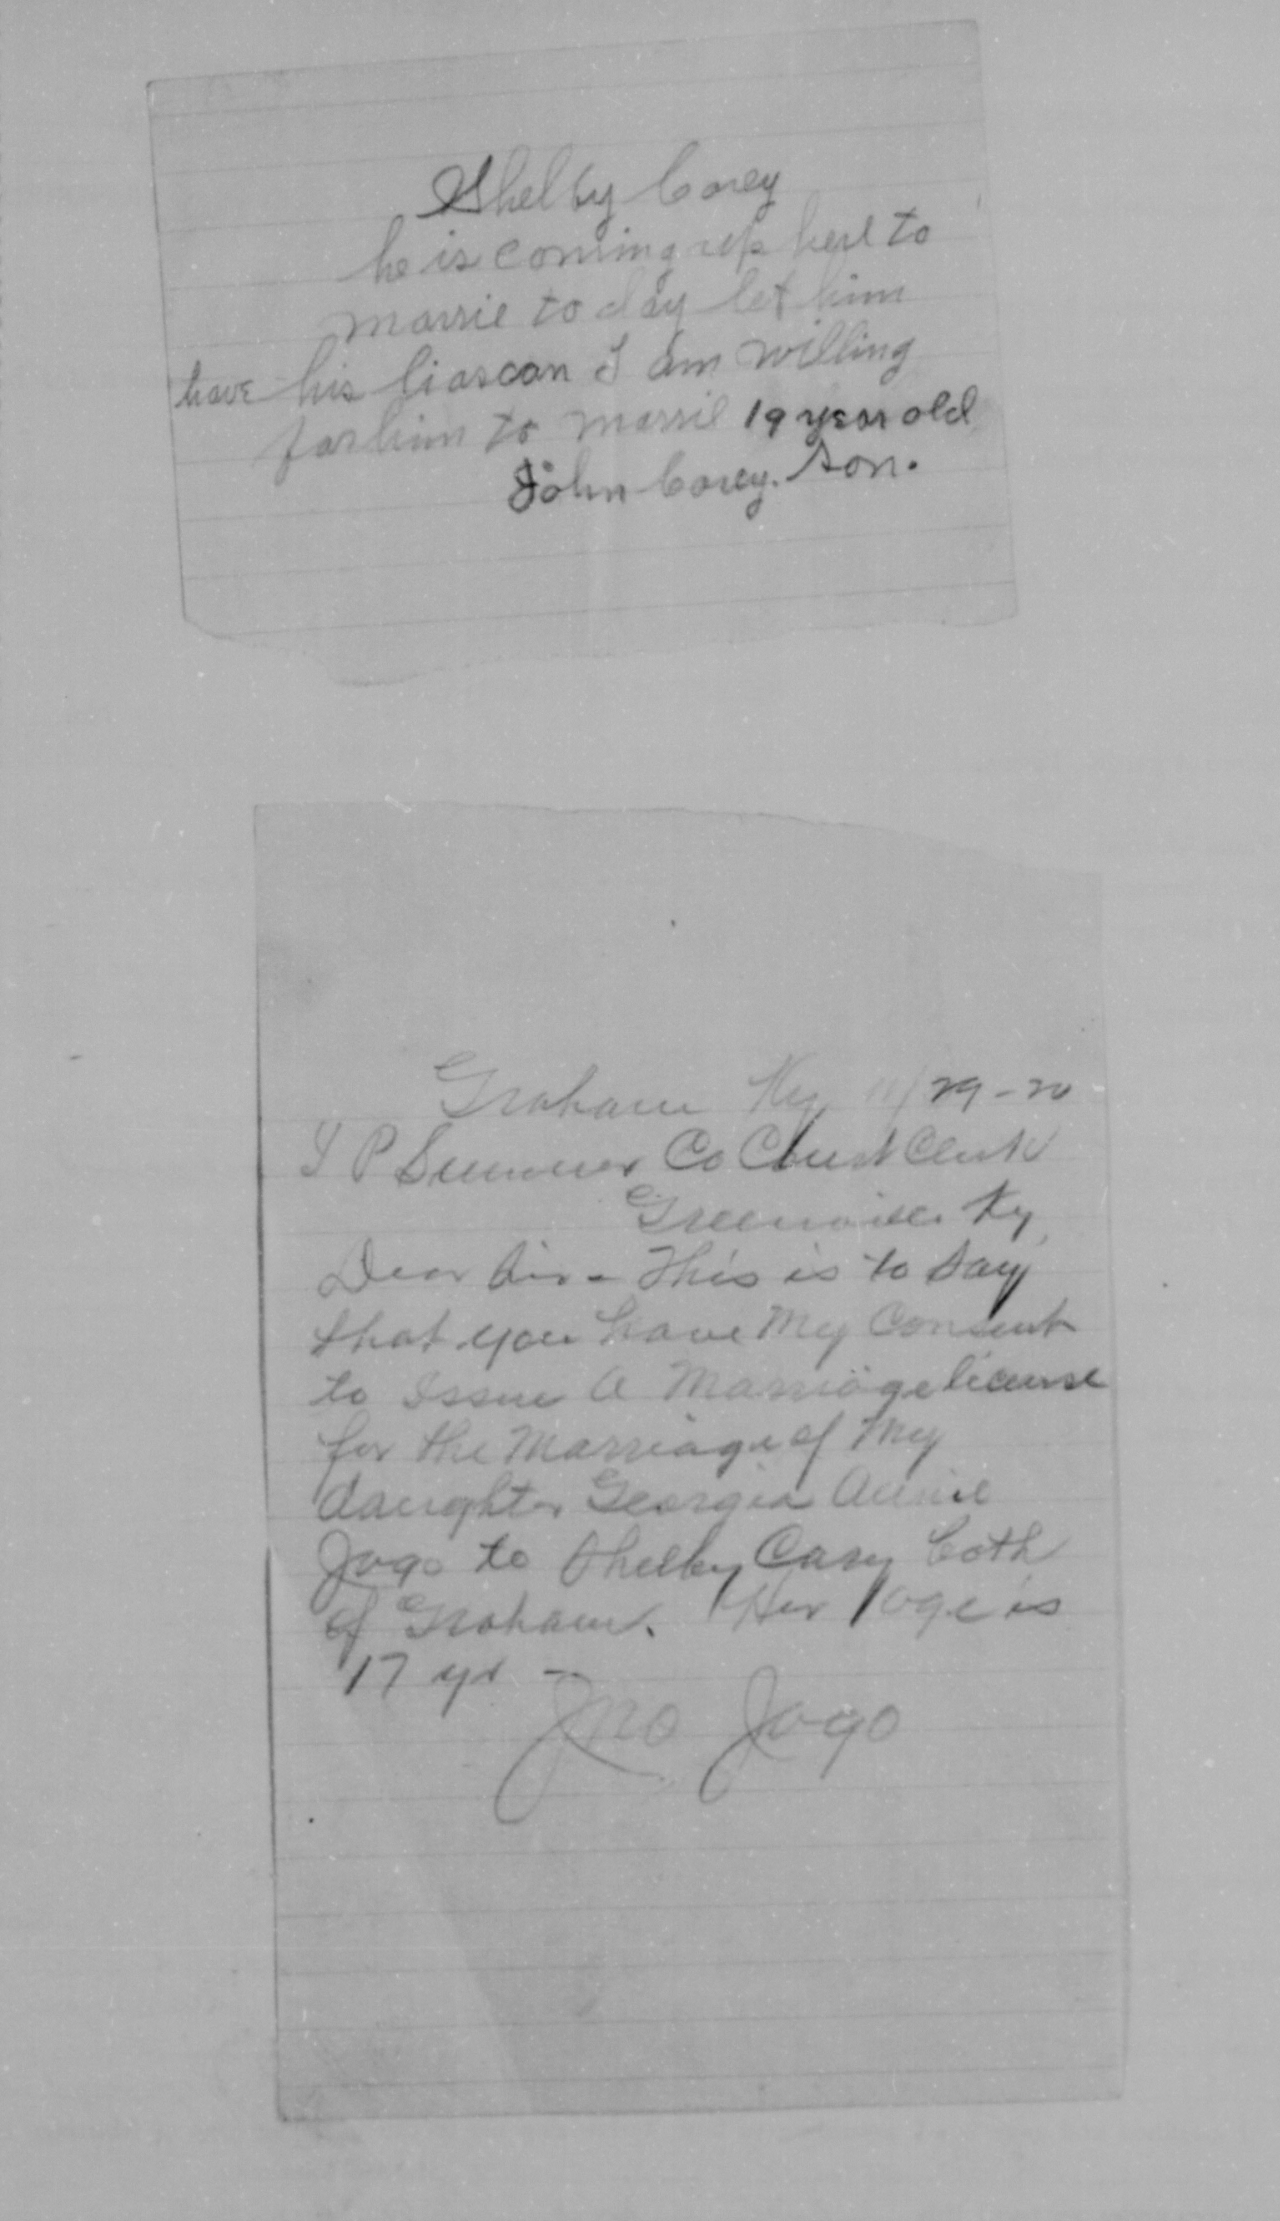 Shelby Corey
he is coming up here to
marrie to day let him
have his liascan I am willing
for him to marrie 19 year old
John Corey. Son.
Graham Ky 11/29-20
T P Summers Co Court Clerk
Greenville Ky
Dear Sir - This is to say
that you have My Consent
to Issue A Marriage license
for the Marriage of My
daughter Georgia Annie
Jago to Shelby Cary both
of Graham. Her age is
17 yr -
Jno Jago